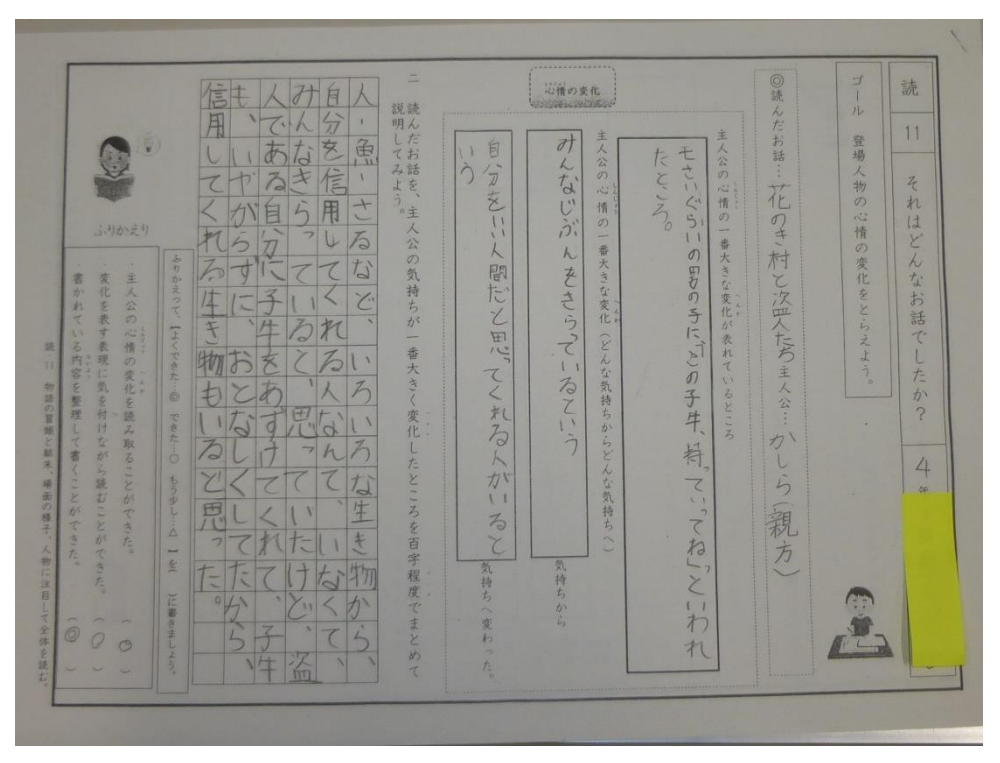 読 11 それはどんなお話でしたか? 4年
ゴール 登場人物の心情の変化をとらえよう。
◎読んだお話…花のき村と盗人たち 主人公…かしら(親方)
心情の変化
主人公の心情の一番大きな変化が表れているところ
七さいぐらいの男の子に、「この子牛、持っていってね」といわれ
たところ。
主人公の心情の一番大きな変化(どんな気持ちからどんな気持ちへ)
みんなじぶんをきらっているという
気持ちから
自分をいい人間だと思ってくれる人がいると
いう
気持ちへ変わった。
二 読んだお話を、主人公の気持ちが一番大きく変化したところを百字程度でまとめて
説明してみよう。
人・魚・さるなど、いろいろな生き物から、
自分を信用してくれる人なんて、いなくて、
みんなきらっていると、思っていたけど、盗
人である自分に子牛をあずけてくれて、子牛
も、いやがらずに、おとなしくしてたから、
信用してくれる生き物もいると思った。
ふりかえり
ふりかえって、【よくできた…◎ できた…○ もう少し…△】を( )に書きましょう。
・主人公の心情の変化を読み取ることができた。 (○)
・変化を表す表現に気を付けながら読むことができた。 (○)
書かれている内容を整理して書くことができた。 (◎)
読 11 物語の冒頭と結末、場面の様子、人物に注目して全体を読む。